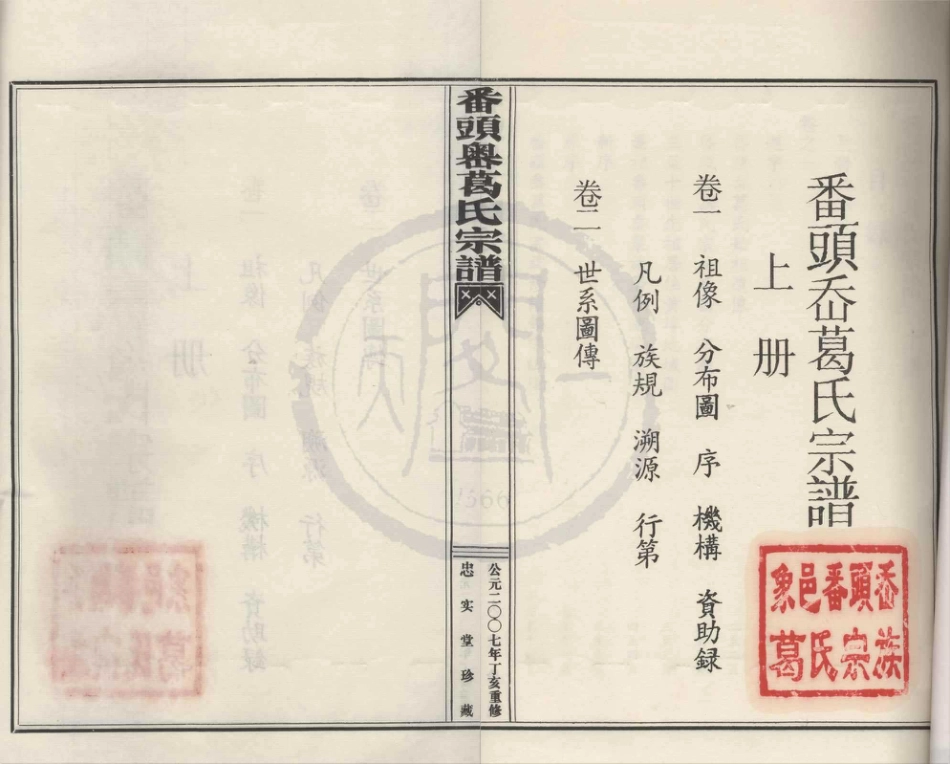 番頭岙葛氏宗譜
上册
卷一 祖像 分布圖 序 機構 資助録
凡例 族規 溯源 行第
卷二 世系圖傳
象邑番頭岙
葛氏宗族
番頭嶴葛氏宗譜
公元二〇〇七年丁亥重修
忠实堂珍藏